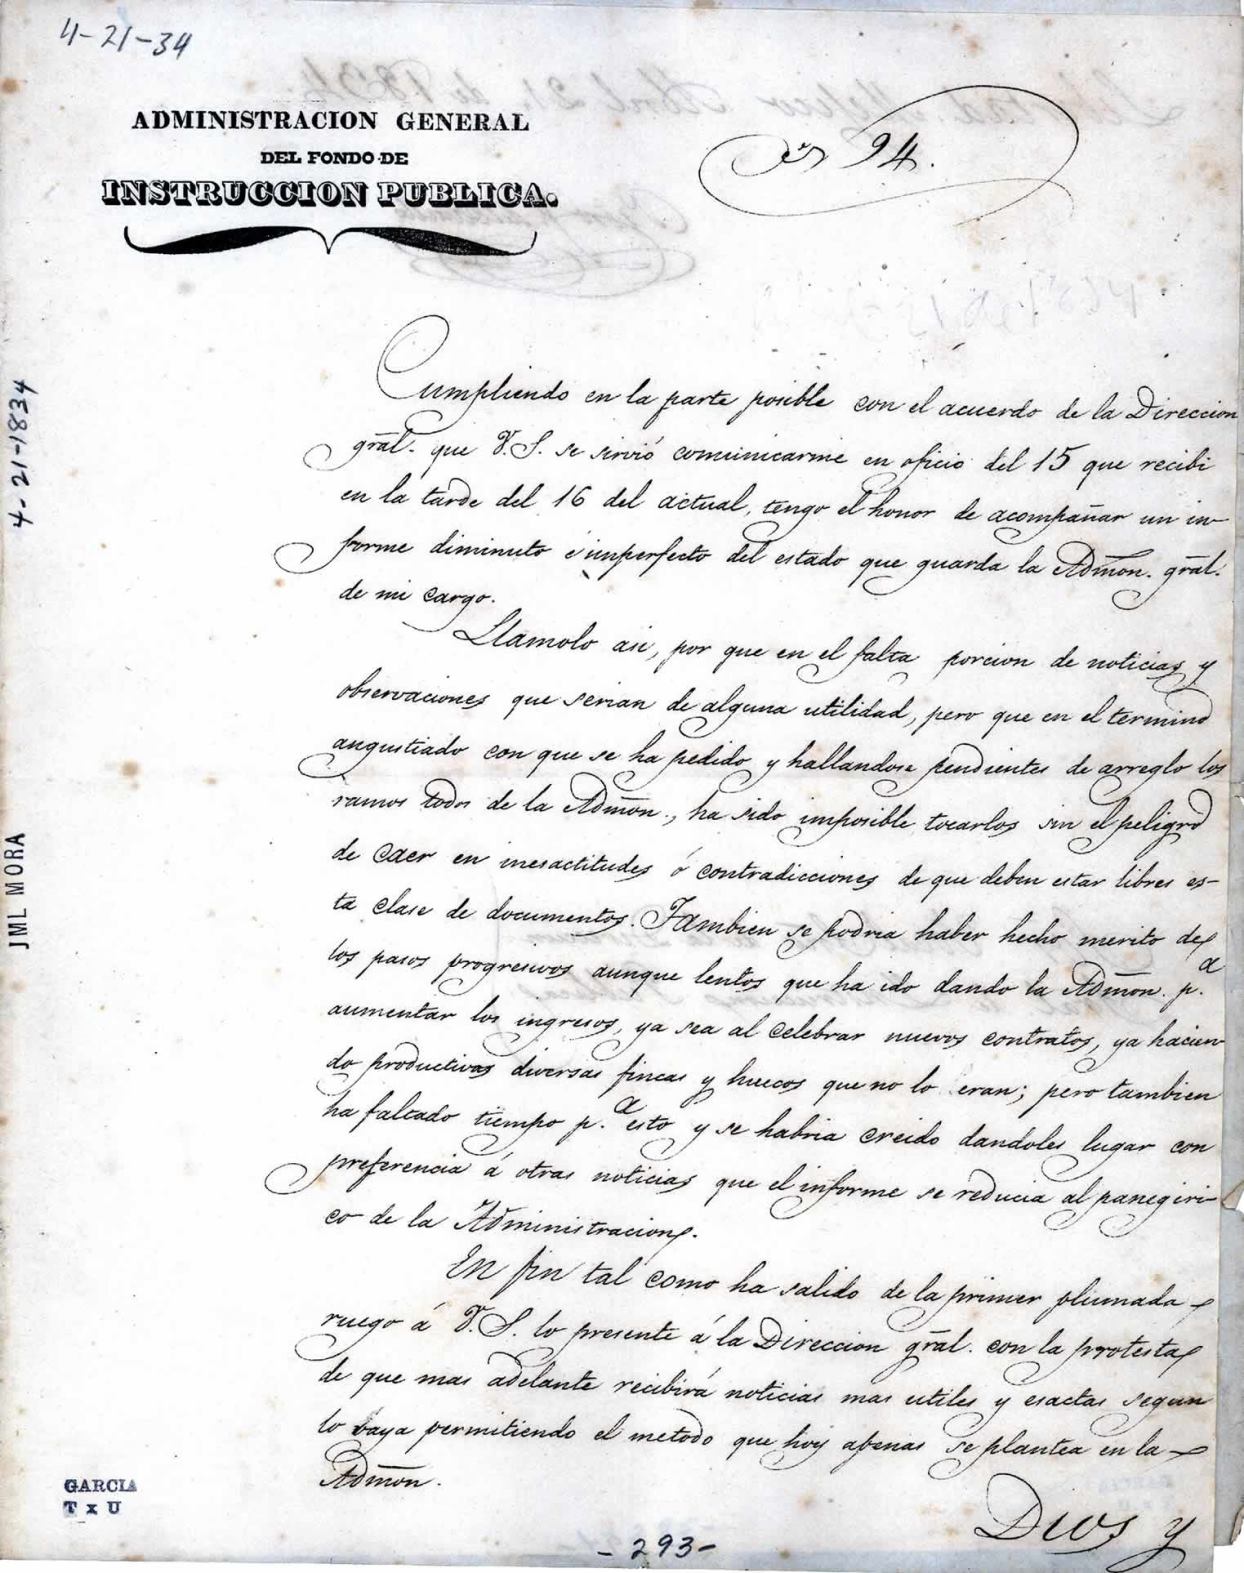 4-21-34
ADMINISTRACION GENERAL
DEL FONDO DE
INSTRUCCION PUBLICA.
94.
Cumpliendo en la parte posible con el acuerdo de la Direccion
grãl. que V.S. se sirvió comunicarme en oficio del 15 que recibi
en la tarde del 16 del actual, tengo el honor de acompañar un in-
forme diminuto é imperfecto del estado que guarda la Admõn. grãl.
de mi cargo.
Llamolo asi, por que en el falta porcion de noticias y
observaciones que serian de alguna utilidad, pero que en el termino
angustiado con que se ha pedido y hallandose pendientes de arreglo los
ramos todos de la Admõn., ha sido imposible tocarlos sin el peligro
de caer en inesactitudes ó contradicciones de que deben estar libres es-
ta clase de documentos. Tambien se podria haber hecho merito de
los pasos progresivos aunque lentos que ha ido dando la Admõn. p.a
aumentar los ingresos, ya sea al celebrar nuevos contratos, ya hacien-
do productivas diversas fincas y huecos que no lo eran; pero tambien
ha faltado tiempo p.a esto y se habria creido dandoles lugar con
preferencia á otras noticias que el informe se reducia al panegiri-
co de la Administracion.
En fin tal como ha salido de la primer plumada
ruego á V.S. lo presente á la Direccion grãl. con la protesta
de que mas adelante recibirá noticias mas utiles y esactas segun
lo vaya permitiendo el metodo que hoy apenas se plantea en la
Admõn.
Dios y
4-21-1834
JML MORA
GARCIA
T x U
-293-